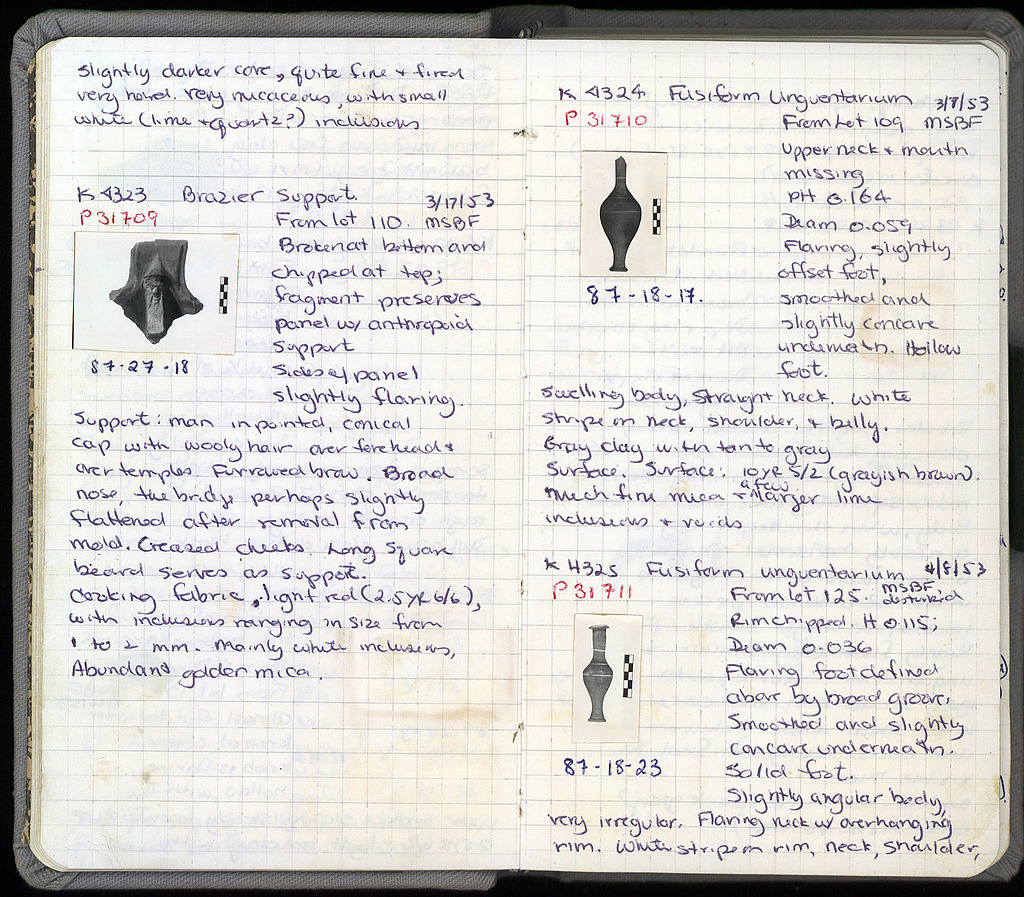 slightly darker core, quite fine + fired
very hard. Very micaceous, with small
white (lime + quartz?) inclusions
K 4323 Brazier Support. 3/17/53
P 31709
From lot 110. MSBF
Broken at bottom and
chipped at top;
fragment preserves
panel w/ anthropoid
support
Sides of panel
slightly flaring.
87-27-18
Support: man in pointed, conical
cap with wooly hair over forehead +
over temples. Furrowed brow. Broad
nose, the bridge perhaps slightly
flattened after removal from
mold. Creased cheeks. Long square
beard serves as support.
Cooking fabric, light red (2.5YR 6/6),
with inclusions ranging in size from
1 to 2 mm. Mainly white inclusions,
Abundant golden mica.
K 4324 Fusiform Unguentarium 3/7/53
P 31710
From Lot 109 MSBF
Upper neck + mouth
missing
PH 0.164
Diam 0.059
Flaring, slightly
offset foot,
smoothed and
slightly concave
underneath. Hollow
foot.
87-18-17.
Swelling body, straight neck. White
stripe on neck, shoulder, + belly.
Gray clay with tan to gray
Surface. Surface: 10YR 5/2 (grayish brown).
Much fine mica + a few larger lime
inclusions + voids
K 4325 Fusiform unguentarium 4/8/53
P 31711
From lot 125. MSBF disturbed
Rim chipped. H 0.115;
Diam 0.036
Flaring foot defined
above by broad groove.
Smoothed and slightly
concave underneath.
Solid foot.
87-18-23
Slightly angular body,
very irregular. Flaring neck w/ overhanging
rim. White stripe on rim, neck, shoulder,